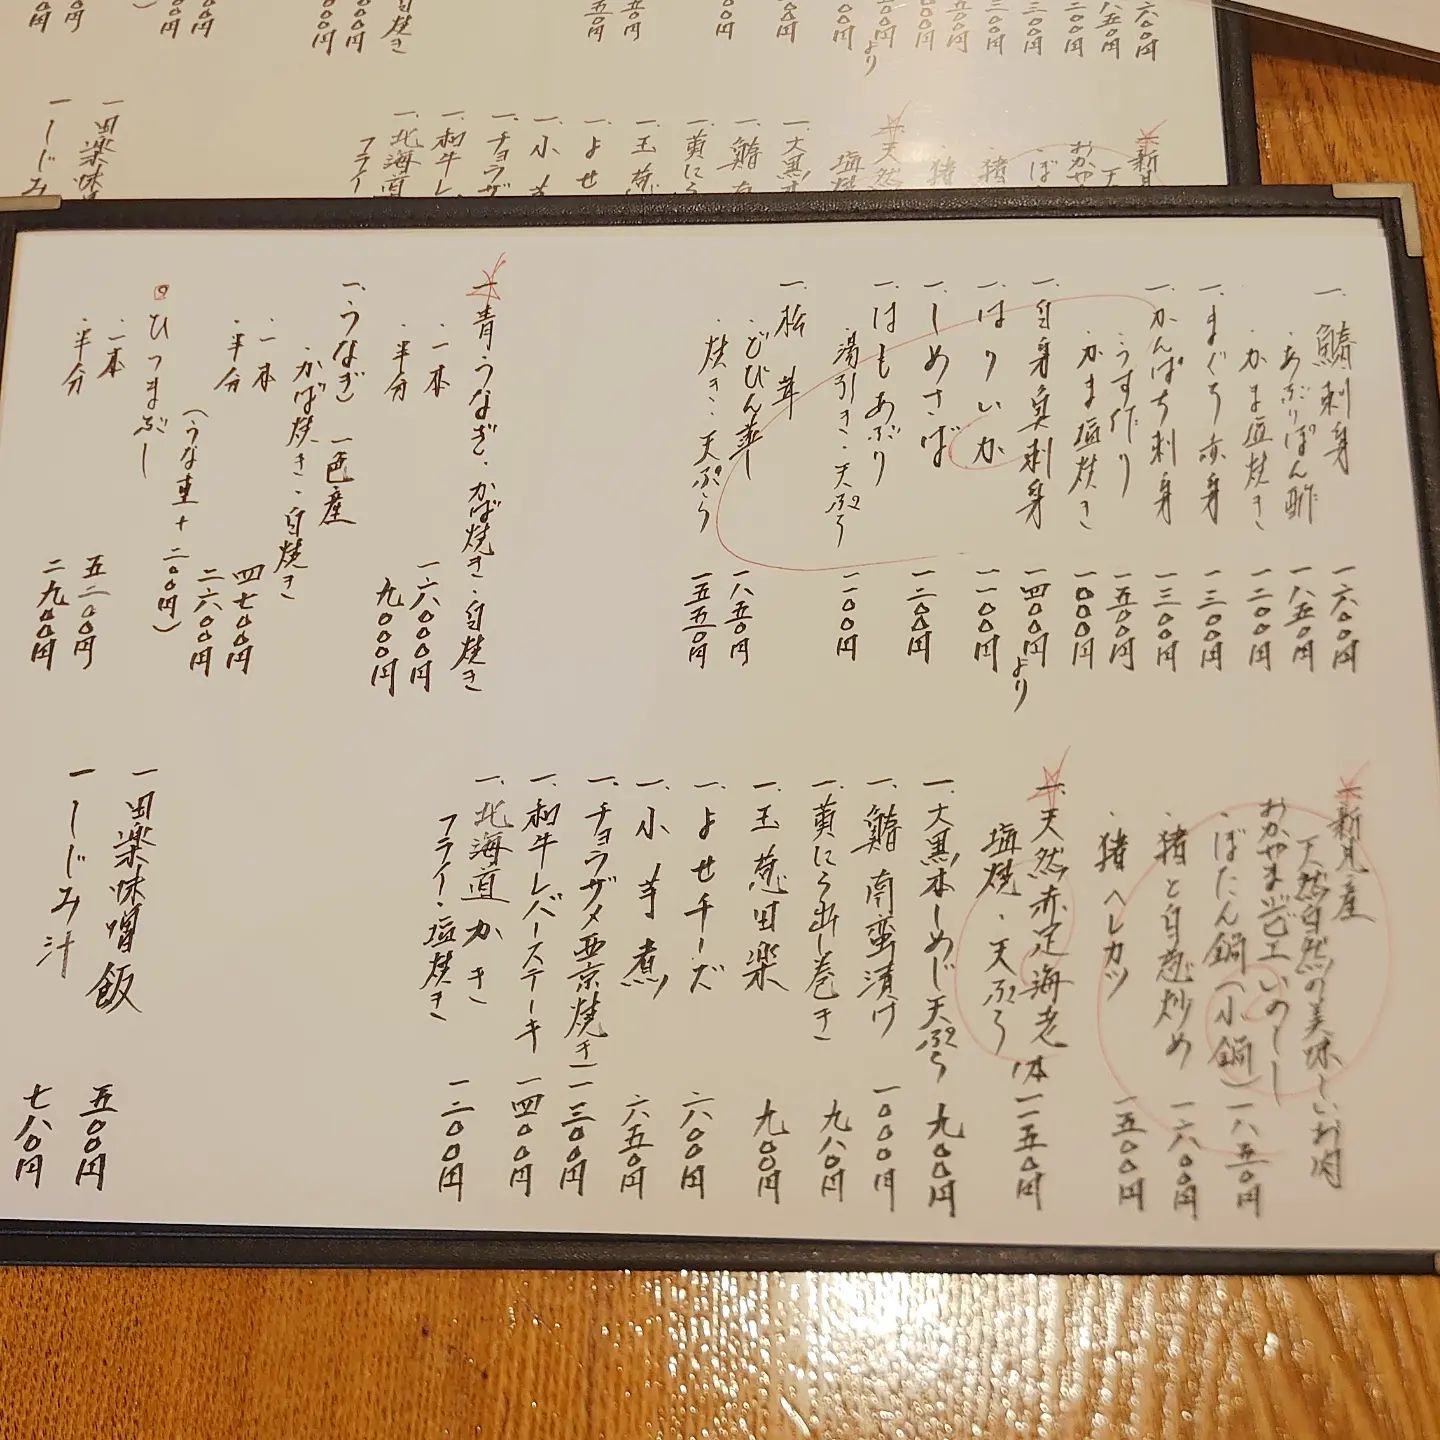 一、鰆刺身 一六〇〇円
・あぶりぽん酢 一八五〇円
・かま塩焼き 一二〇〇円
一、まぐろ赤身 一三〇〇円
一、かんぱち刺身 一三〇〇円
・うす作り 一五〇〇円
・かま塩焼き 一〇〇〇円
一、白身魚刺身 一四〇〇円より
一、はりいか 一一〇〇円
一、しめさば 一二〇〇円
一、はもあぶり
湯引き・天ぷら 一一〇〇円
一、松茸
・どびん蒸し 一八五〇円
・焼き・天ぷら 一五五〇円
一、青うなぎ、かば焼き・白焼き
・一本 一六〇〇〇円
・半分 九〇〇〇円
一、うなぎ 一色産
・かば焼き・白焼き
・一本 四七〇〇円
・半分 二六〇〇円
(うな重+二〇〇円)
ひつまぶし
・一本 五二〇〇円
・半分 二九〇〇円
新見産
天然自然の美味しいお肉
おかやまジビエいのしし
・ぼたん鍋(小鍋) 一八五〇円
・猪と白葱炒め 一六〇〇円
・猪ヘレカツ 一五〇〇円
一、天然赤足海老一本 一一五〇円
塩焼・天ぷら
一、大黒本しめじ天ぷら 九〇〇円
一、鰆南蛮漬け 一〇〇〇円
一、黄にら出し巻き 九八〇円
一、玉葱田楽 九〇〇円
一、よせチーズ 六〇〇円
一、小芋煮 六五〇円
一、チョウザメ西京焼き 一三〇〇円
一、和牛レバーステーキ 一四〇〇円
一、北海道かき
フライ・塩焼き 一二〇〇円
一田楽味噌飯 五〇〇円
一しじみ汁 七八〇円